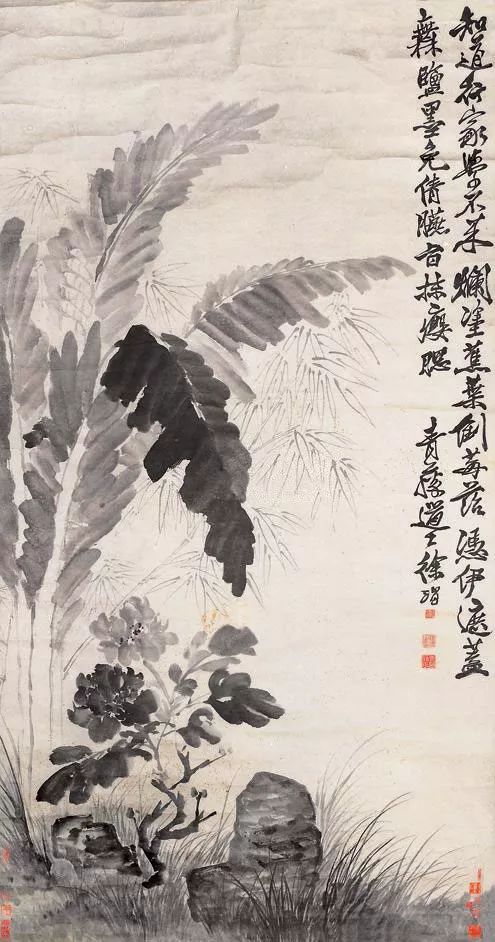 知道行家學不来爛塗蕉葉倒莓苔憑伊遮蓋
無鹽墨免倩臙脂抹癭腮 青藤道士徐渭